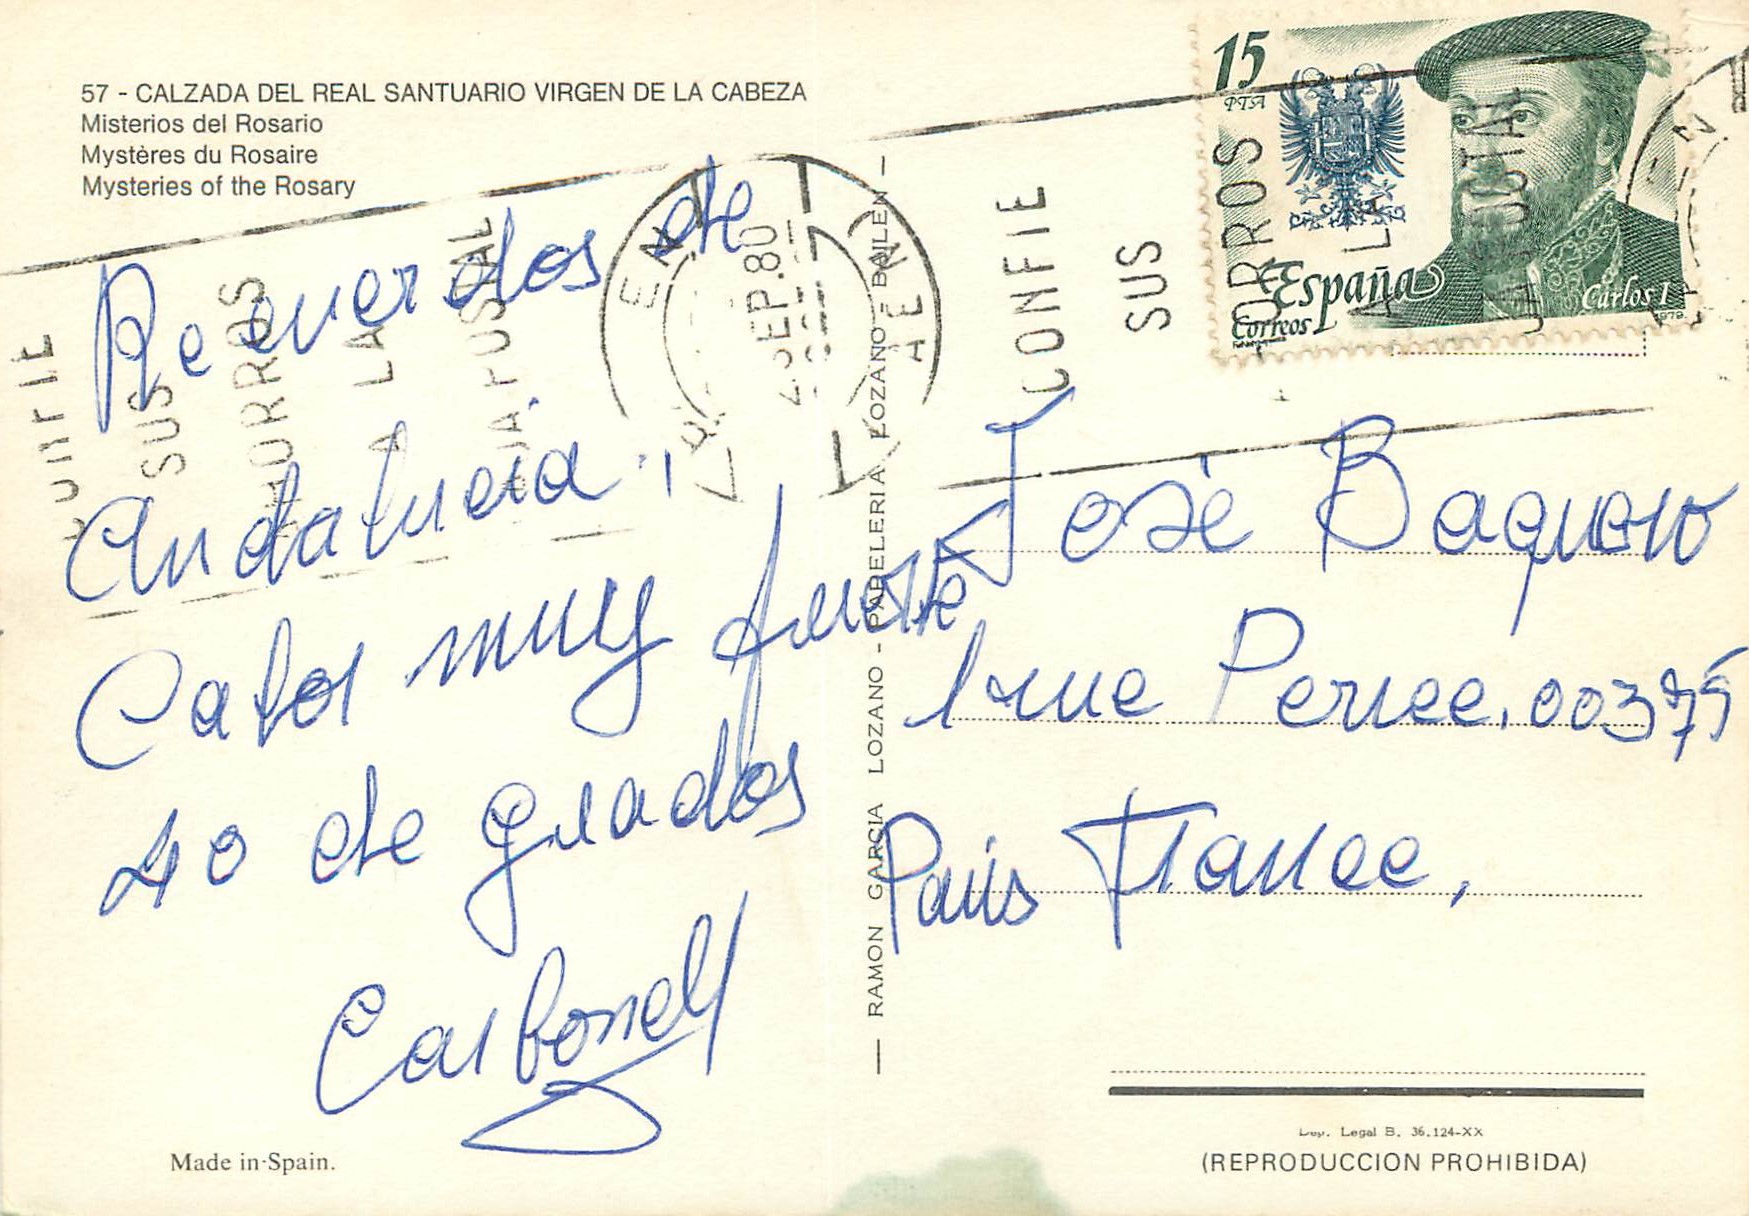 57 - CALZADA DEL REAL SANTUARIO VIRGEN DE LA CABEZA
Misterios del Rosario
Mystères du Rosaire
Mysteries of the Rosary
Recuerdos de
Andalucia.
Calor muy fuerte
40 de grados
Carbonell
Made in Spain.
RAMON GARCIA LOZANO - PAPELERIA LOZANO - BAILEN
CONFIE
SUS
AHORROS
A LA
CAJA POSTAL
SEP.80
CONFIE
SUS
AHORROS
A LA
CAJA POSTAL
15
PTA
España
Correos
Carlos I
1979
José Baquero
1 rue Perree. 00375
Paris France,
Dep. Legal B. 36.124-XX
(REPRODUCCION PROHIBIDA)